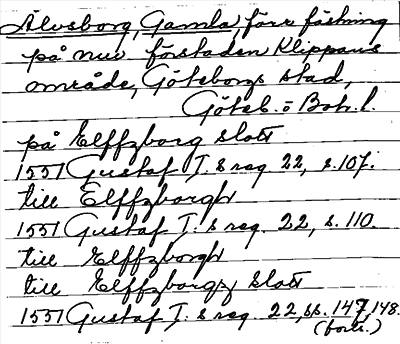 Älvsborg, Gamla, förr fästning
på nuv. förstaden Klippans
område, Göteborgs stad,
Göteb. o Boh. l.
på Elffzborg slott
1551 Gustaf I:s reg. 22, s. 107.
till Elffzborgh
1551 Gustaf I:s reg. 22, s. 110.
till Elffzborgh
till Elffzborgz slott
1551 Gustaf I:s reg. 22, ss. 147, 148.
(forts.)